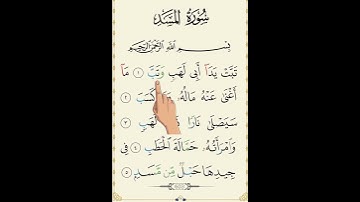 سُورَةُ المَسَدِ
بِسْمِ اللَّهِ الرَّحْمَٰنِ الرَّحِيمِ
تَبَّتْ يَدَآ أَبِى لَهَبٍ وَتَبَّ ١ مَآ
أَغْنَىٰ عَنْهُ مَالُهُۥ كَسَبَ ٢
سَيَصْلَىٰ نَارًا لَهَبٍ ٣
وَٱمْرَأَتُهُۥ حَمَّالَةَ ٱلْحَطَبِ ٤ فِى
جِيدِهَا حَبْلٌ مِّن مَّسَدٍۭ ٥